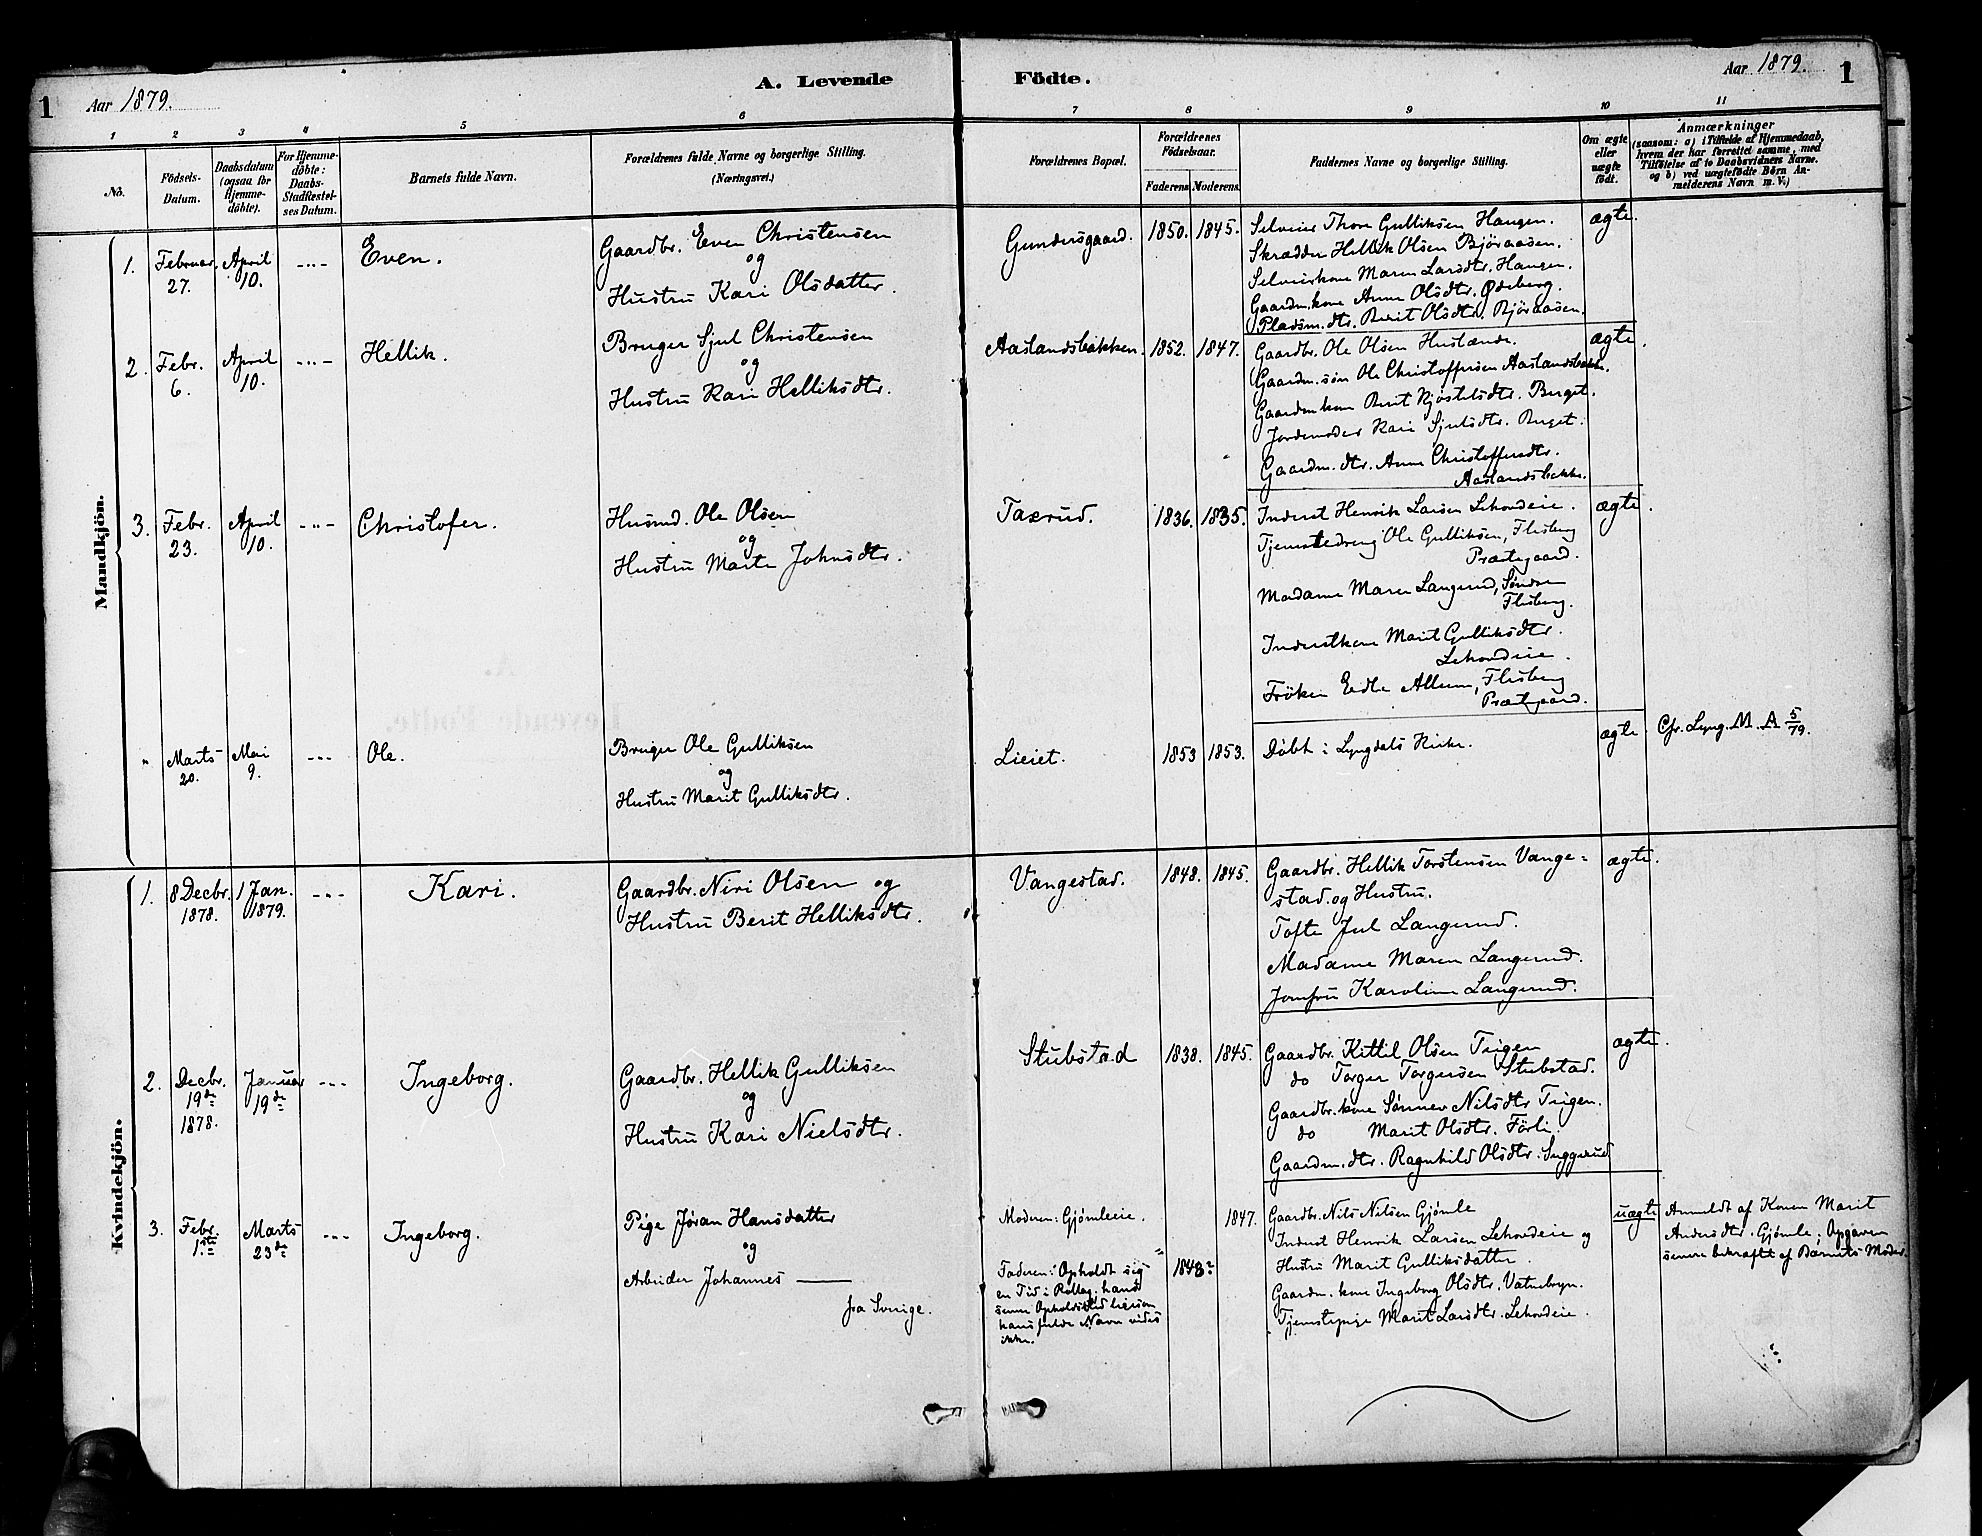 1
Aar 1879.
A. Levende
Födte.
Aar 1879.
1
1
2
3
4
5
6
7
8
9
10
11
No.
Födsels-
Datum.
Daabsdatum
(ogsaa for
Hjemme-
döbte).
For Hjemme-
döbte:
Daabs-
Stadfæstel-
ses Datum.
Barnets fulde Navn.
Forældrenes fulde Navne og borgerlige Stilling.
(Næringsvei.)
Forældrenes Bopæl.
Forældrenes
Födselsaar.
Faderens.
Moderens.
Faddernes Navne og borgerlige Stilling.
Om ægte
eller
uægte
födt.
Anmærkninger
(saasom: a) i Tilfælde af Hjemmedaab,
hvem der har forrettet samme, med
Tilföielse af to Daabsvidners Navne.
og b) ved uægtefödte Börn An-
melderens Navn m. V.)
Mandkjön.
1.
Februar
27.
April
10.
Even.
Gaardbr. Even Christensen
og
Hustru Kari Olsdatter.
Gundersgaard.
1850.
1845.
Selveier Thore Gulliksen Haugen.
Skrædder Hellik Olsen Björaasen.
Selveierkone Maren Larsdtr. Haugen.
Gaardm.kone Anne Olsdtr. Ödeberg.
Pladsm. dtr. Berit Olsdtr. Björaasen.
ægte.
2.
Febr.
6.
April
10.
Hellik.
Bruger Sjul Christensen
og
Hustru Kari Helliksdtr.
Aaslandsbakken.
1852.
1847.
Gaardbr. Ole Olsen
Gaardm. sön Ole Christoffersen Aaslandsbakk.
Gaardm.kone Berit Kjöstelsdtr. Berget.
Jordemoder Kari Sjulsdtr. Berget.
Gaardm. dtr. Anne Christoffersdtr.
Aaslandsbakke.
ægte.
3.
Febr.
23.
April
10.
Christofer.
Husmd. Ole Olsen
og
Hustru Marte Johnsdtr.
Taxrud.
1836.
1835.
Inderst Henrik Larsen Lehovdeie.
Tjenestedreng Ole Gulliksen, Flesberg
Præstegaard.
Madame Maren Langerud, Söndre
Flesberg.
Inderstkone Marit Gulliksdtr.
Lehovdeie.
Fröken Allum, Flesberg
Præstegaard.
ægte.
"
Marts
20.
Mai
9.
Ole.
Bruger Ole Gulliksen
og
Hustru Marit Gulliksdtr.
Lieiet.
1853
1853.
Döbt i Lyngdals Kirke.
ægte.
Cfr. Lyng. M. A 5/79.
Kvindekjön.
1.
8 Decbr.
1878.
1 Jan.
1879.
Kari.
Gaardbr. Niri Olsen og
Hustru Berit Helliksdtr.
Vangestad.
1848.
1845.
Gaardbr. Hellik Torstensen Vange=
stad og Hustru.
Tofte Juel Langerud.
Madame Maren Langerud.
Jomfru Karoline Langerud.
ægte.
2.
Decbr.
19de
1878.
Januar
19de
Ingeborg.
Gaardbr. Hellik Gulliksen
og
Hustru Kari Nielsdtr.
Stubstad
1838.
1845.
Gaardbr. Kittil Olsen Trigen
do Torger Torgersen Stubstad.
Gaardbr. kone Sönnev Nilsdtr Trigen.
do Marit Olsdtr. Förli.
Gaardm. dtr. Ragnhild Olsdtr. Suggerud
ægte.
3.
Febr.
1ste
Marts
23de
Ingeborg.
Pige Jöran Hansdatter
og
Arbeider Johannes ——
fra Sverige.
Moderen: Gjömleeie.
Faderen: Opholdt sig
en Tid i Rollag; hans
senere Opholdssted ligesom
hans fulde Navn vides
ikke.
1848?
1847.
Gaardbr. Nils Nilsen Gjömle
Inderst Henrik Larsen Lehovdeie og
Hustru Marit Gulliksdatter.
Gaardm. kone Ingeborg Olsdtr. Vatnebryn.
Tjenestepige Marit Larsdtr. Lehovdeie.
uægte
Anmeldt af Konen Marit
Andersdtr. Gjömle; Opgaven
senere bekræftet af Barnets Moder.